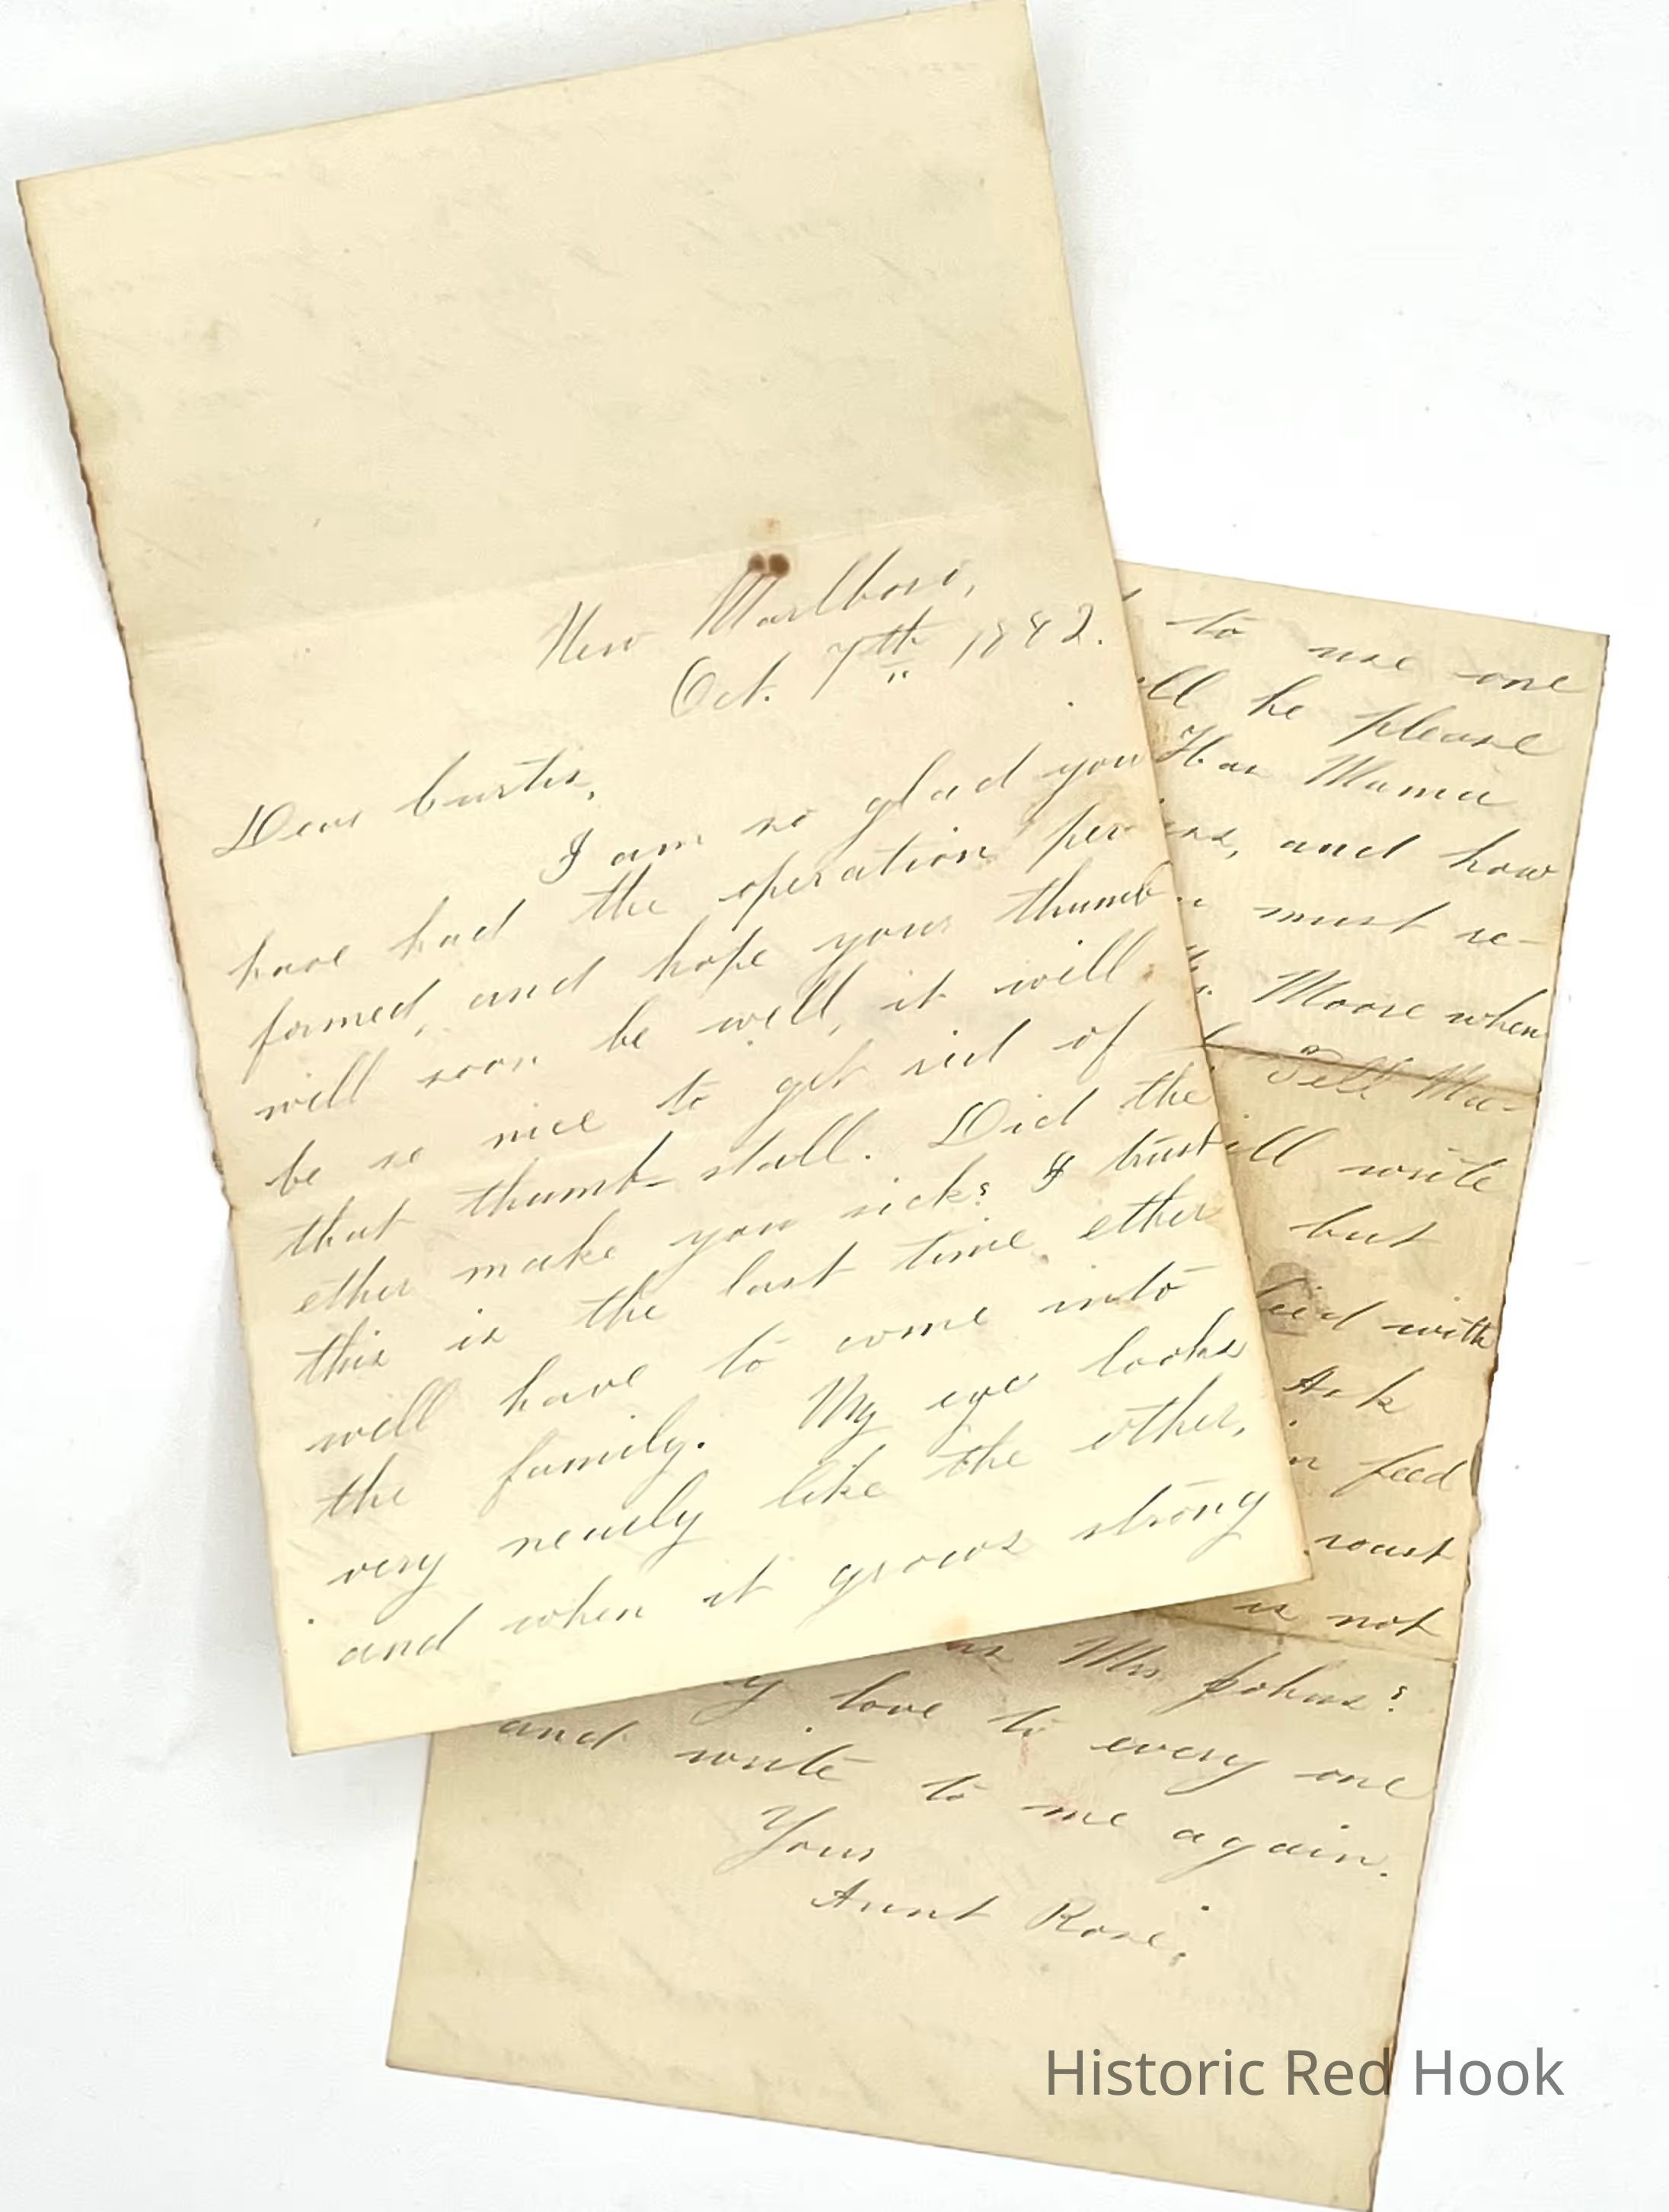 New Marlboro,
Oct. 7th 1892.
Dear Curtis,
I am so glad you
have had the operation per-
formed, and hope your thumb
will soon be well, it will
be so nice to get rid of
that thumb-stall. Did the
ether make you sick? I trust
this is the last time ether
will have to come into
the family. My eye looks
very nearly like the other,
and when it grows strong
to use one
he please
Has Mama
and how
must re-
Moore when
Tell Ma-
ill write
but
with
Ask
feed
roast
is not
as Mrs. Johns?
love to every one
and write to me again.
Your
Aunt Rose.
Historic Red Hook